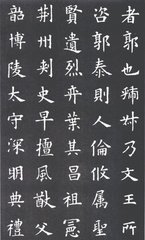 者郭也虢叔乃文王所
咨郭泰則人倫攸屬聖
賢遺烈弈葉其昌祖憲
荊州刺史早擅風猷父
韶博陵太守深明典禮